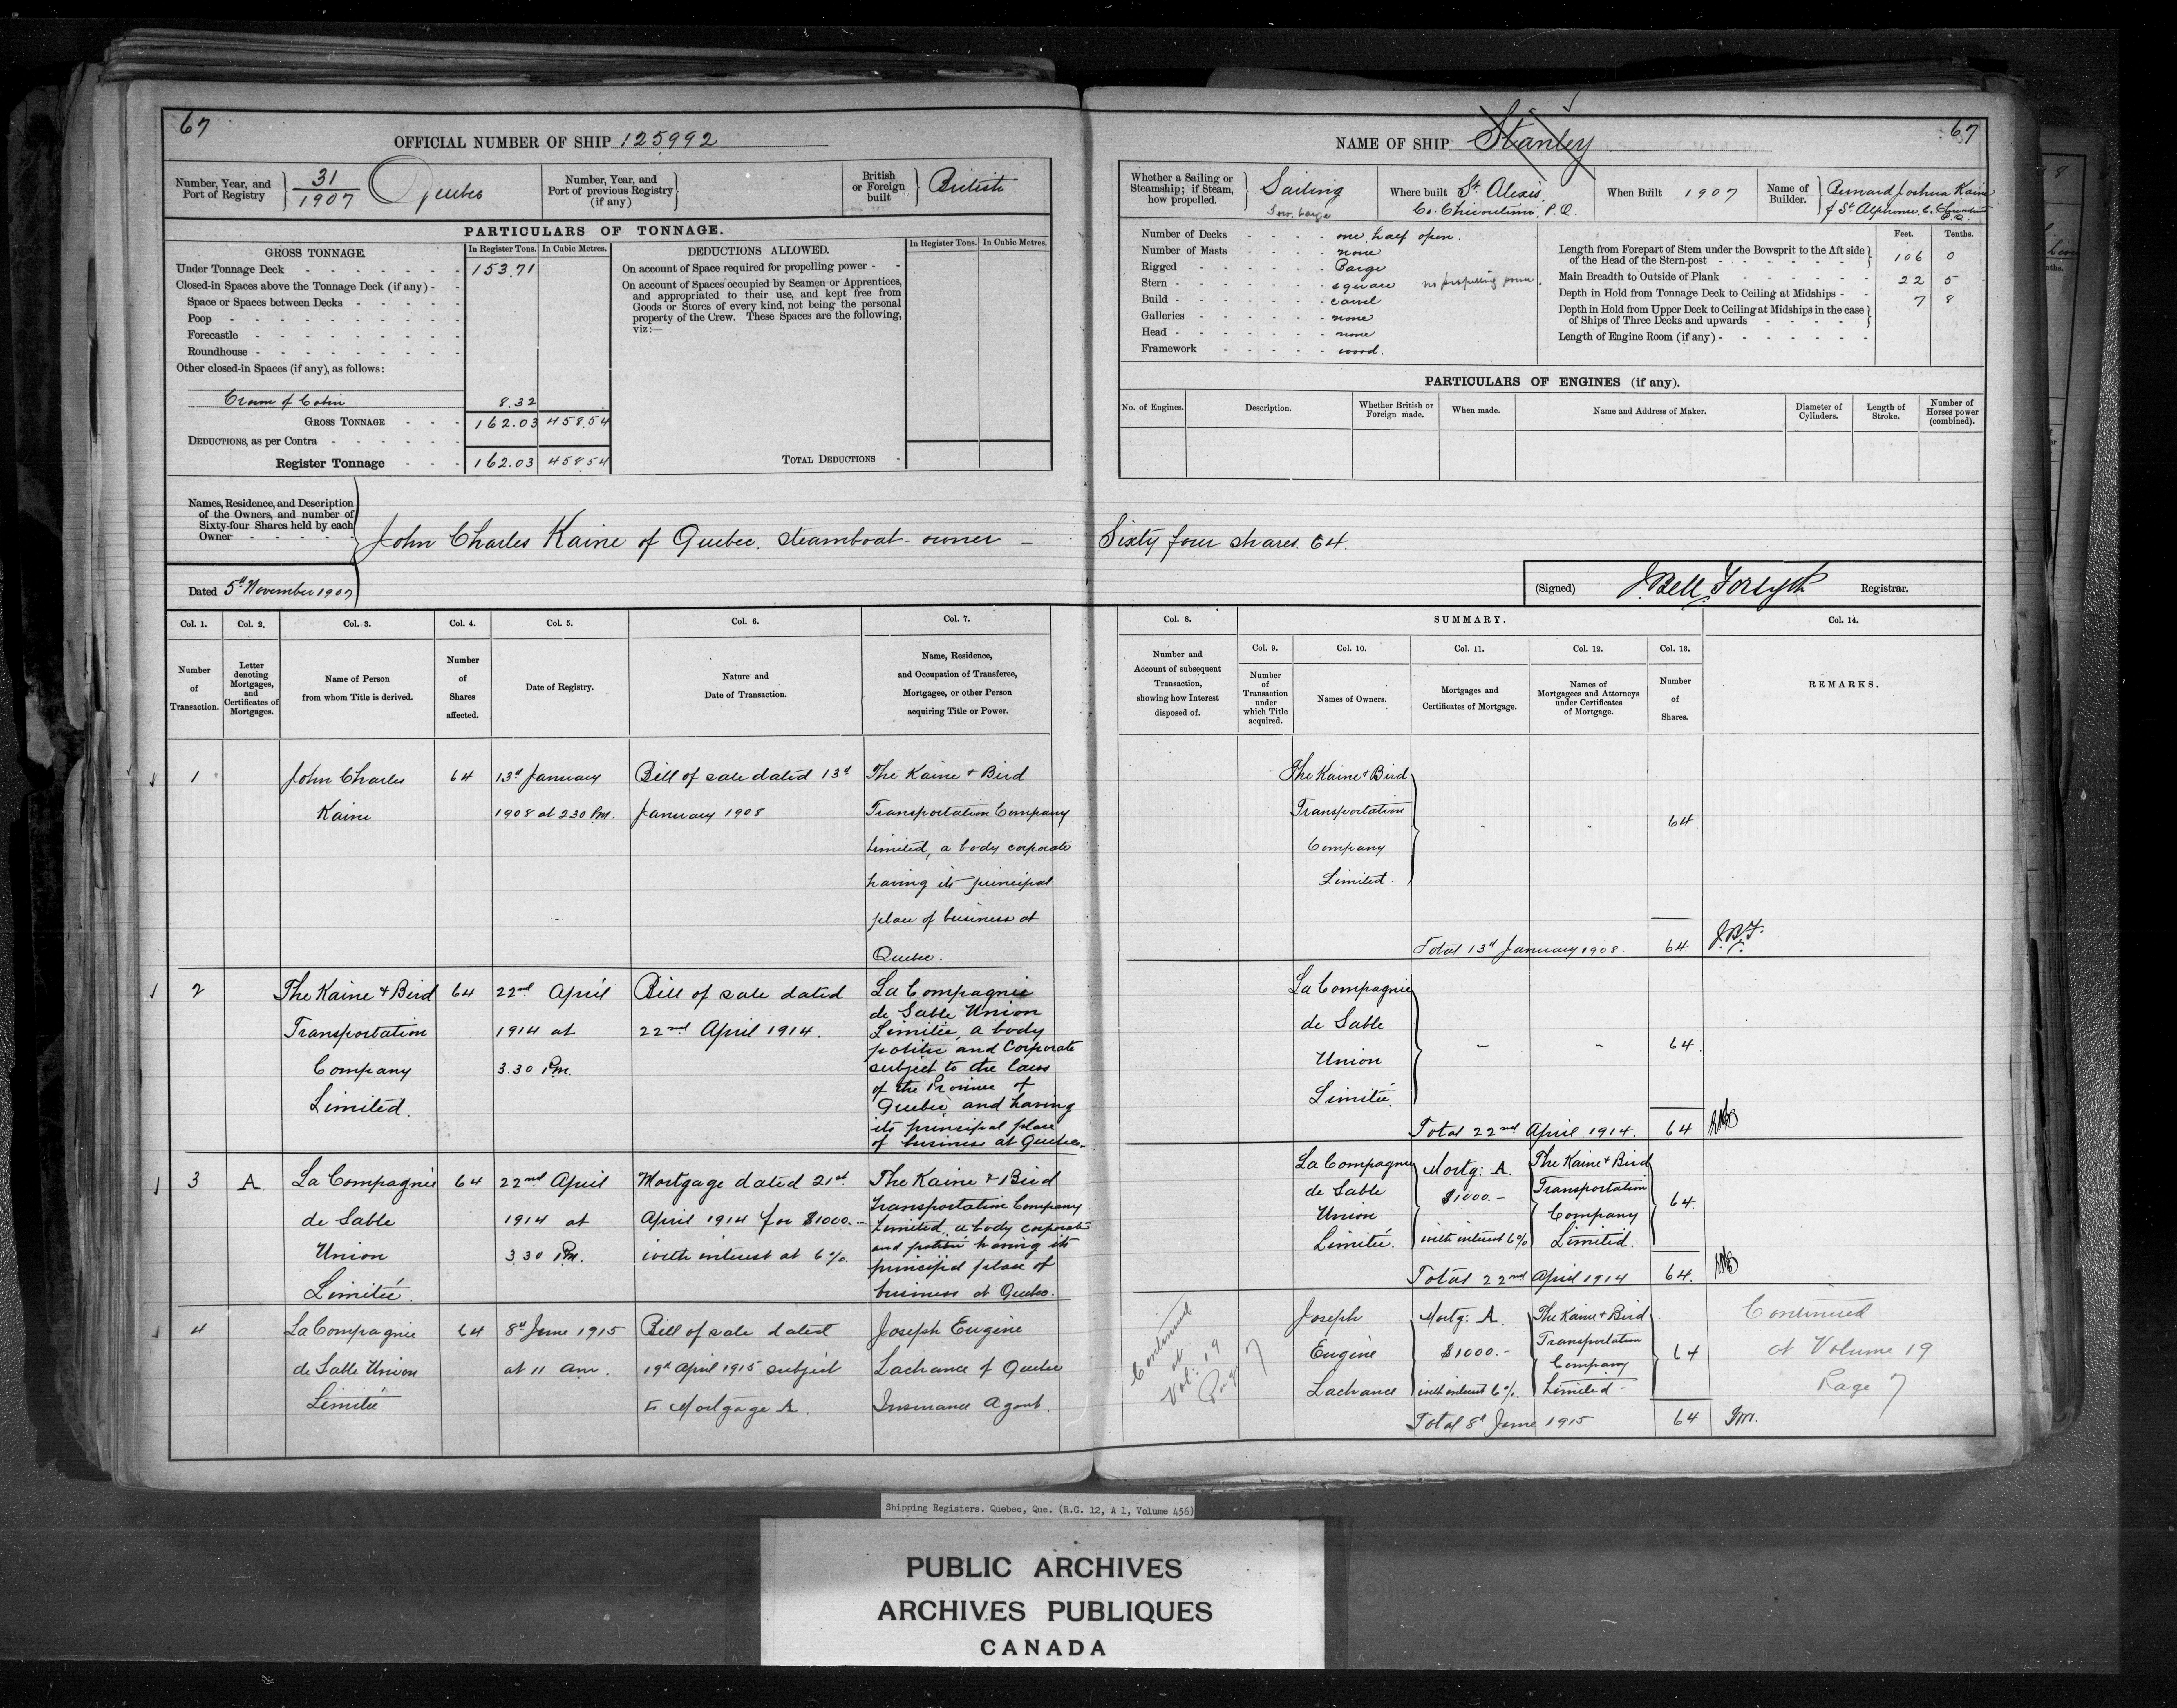 67
OFFICIAL NUMBER OF SHIP 125992
Number, Year, and
Port of Registry
31
1907
Quebec
Number, Year, and
Port of previous Registry
(if any)
British
or Foreign
built
British
PARTICULARS OF TONNAGE.
GROSS TONNAGE.
In Register Tons.
In Cubic Metres.
Under Tonnage Deck
153.71
Closed-in Spaces above the Tonnage Deck (if any)
Space or Spaces between Decks
Poop
Forecastle
Roundhouse
Other closed-in Spaces (if any), as follows:
Crown of Cabin
8.32
GROSS TONNAGE
162.03
458.54
DEDUCTIONS, as per Contra
Register Tonnage
162.03
458.54
DEDUCTIONS ALLOWED.
In Register Tons.
In Cubic Metres.
On account of Space required for propelling power
On account of Spaces occupied by Seamen or Apprentices,
and appropriated to their use, and kept free from
Goods or Stores of every kind, not being the personal
property of the Crew. These Spaces are the following,
viz:—
TOTAL DEDUCTIONS
NAME OF SHIP Stanley
67
Whether a Sailing or
Steamship; if Steam,
how propelled.
Sailing
Tow barge
Where built St. Alexis
Co. Chicoutimi, P.Q.
When Built 1907
Name of
Builder.
Bernard Joshua Kaine
of St. Alphonse, Co. Chicoutimi
P.Q.
Number of Decks
one, half open.
Number of Masts
none
Rigged
Barge
Stern
square no propelling power.
Build
carvel
Galleries
none
Head
none
Framework
wood.
Feet.
Tenths.
Length from Forepart of Stem under the Bowsprit to the Aft side
of the Head of the Stern-post
106 0
Main Breadth to Outside of Plank
22 5
Depth in Hold from Tonnage Deck to Ceiling at Midships
7 8
Depth in Hold from Upper Deck to Ceiling at Midships in the case
of Ships of Three Decks and upwards
Length of Engine Room (if any)
PARTICULARS OF ENGINES (if any).
No. of Engines.
Description.
Whether British or
Foreign made.
When made.
Name and Address of Maker.
Diameter of
Cylinders.
Length of
Stroke.
Number of
Horses power
(combined).
Names, Residence, and Description
of the Owners, and number of
Sixty-four Shares held by each
Owner
John Charles Kaine of Quebec. steamboat-owner — Sixty four shares. 64.
Dated 5th November 1907
(Signed) J. Bell Forsyth Registrar.
Col. 1.
Number
of
Transaction.
Col. 2.
Letter
denoting
Mortgages,
and
Certificates of
Mortgages.
Col. 3.
Name of Person
from whom Title is derived.
Col. 4.
Number
of
Shares
affected.
Col. 5.
Date of Registry.
Col. 6.
Nature and
Date of Transaction.
Col. 7.
Name, Residence,
and Occupation of Transferee,
Mortgagee, or other Person
acquiring Title or Power.
Col. 8.
Number and
Account of subsequent
Transaction,
showing how Interest
disposed of.
SUMMARY.
Col. 9.
Number
of
Transaction
under
which Title
acquired.
Col. 10.
Names of Owners.
Col. 11.
Mortgages and
Certificates of Mortgage.
Col. 12.
Names of
Mortgagees and Attorneys
under Certificates
of Mortgage.
Col. 13.
Number
of
Shares.
Col. 14.
REMARKS.
1
John Charles
Kaine
64
13d January
1908 at 2.30 Pm.
Bill of sale dated 13d
January 1908
The Kaine & Bird
Transportation Company
Limited, a body corporate
having its principal
place of business at
Quebec.
The Kaine & Bird
Transportation
Company
Limited.
64
Total 13d January 1908. 64
J.B.F.
2
The Kaine & Bird
Transportation
Company
Limited.
64
22nd April
1914 at
3.30 Pm.
Bill of sale dated
22nd April 1914.
La Compagnie
de Sable Union
Limitée, a body
politic and Corporate
subject to the laws
of the Province of
Quebec and having
its principal place
of business at Quebec.
La Compagnie
de Sable
Union
Limitée.
64
Total 22nd April 1914. 64
3
A.
La Compagnie
de Sable
Union
Limitée.
64
22nd April
1914 at
3.30 Pm.
Mortgage dated 21st
April 1914 for $1000.—
with interest at 6%.
The Kaine & Bird
Transportation Company
Limited, a body corporate
and politic having its
principal place of
business at Quebec.
La Compagnie
de Sable
Union
Limitée.
Mortg: A.
$1000.—
with interest 6%
The Kaine & Bird
Transportation
Company
Limited.
64.
Total 22nd April 1914 64.
4
La Compagnie
de Sable Union
Limitée
64
8th June 1915
at 11 am.
Bill of sale dated
19th April 1915 subject
to Mortgage A.
Joseph Eugène
Lachance of Quebec
Insurance Agent.
Continued
at
Vol: 19
Page 7
Joseph
Eugène
Lachance
Mortg: A.
$1000.—
with interest 6%.
The Kaine & Bird
Transportation
Company
Limited
64
Total 8th June 1915 64
Continued
at Volume 19
Page 7
Shipping Registers. Quebec, Que. (R.G. 12, A 1, Volume 456)
PUBLIC ARCHIVES
ARCHIVES PUBLIQUES
CANADA